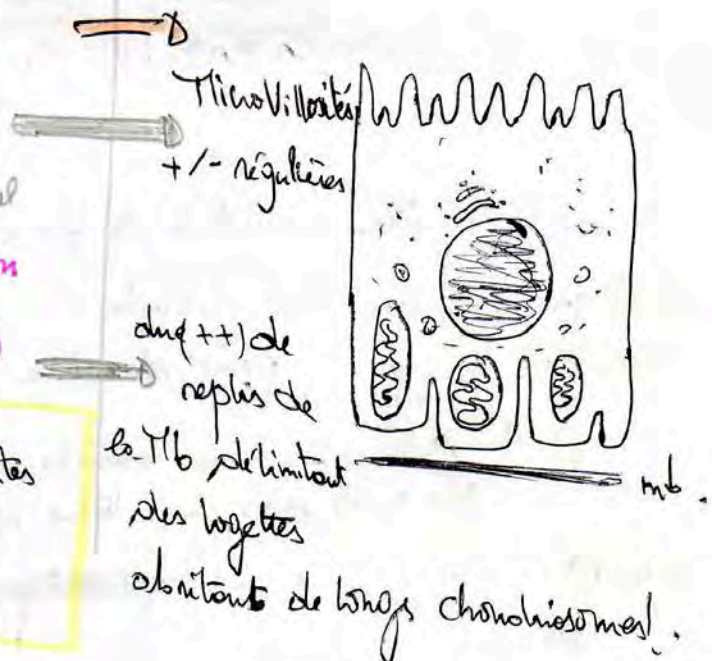 MicroVillosités
+/- régulières
(++) de
replis de
la Mb délimitant
des logettes
abritant de longs chondriosomes!.
mb.